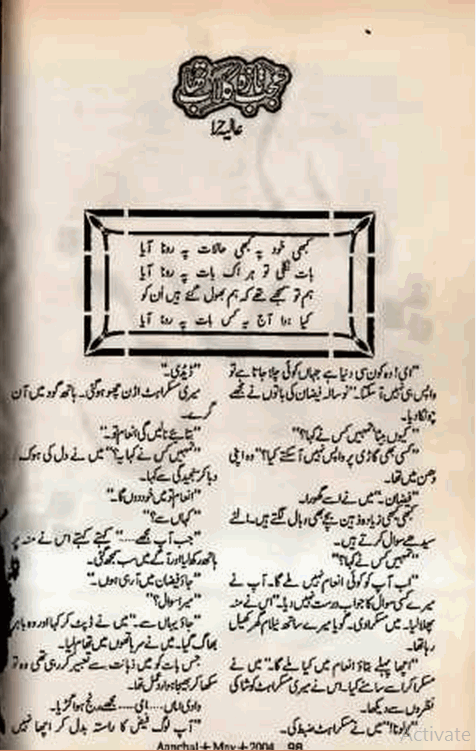 عجب تازہ گلاب تھا
عالیہ حرا
کبھی خود پہ کبھی حالات پہ رونا آیا
بات نکلی تو ہر اک بات پہ رونا آیا
ہم تو سمجھے تھے کہ ہم بھول گئے ہیں اُن کو
کیا ہوا آج یہ کس بات پہ رونا آیا
"امی! وہ کون سی دنیا ہے جہاں کوئی چلا جاتا ہے تو
واپس ہی نہیں آ سکتا۔" نو سالہ فیضان کی باتوں نے مجھے
چونکا دیا۔
"کیوں بیٹا تمہیں کس نے کہا؟"
"کسی بھی گاڑی پر واپس نہیں آ سکتے کیا؟" وہ اپنی
دھن میں تھا۔
"فیضان۔" میں نے اسے گھورا۔
کبھی کبھی زیادہ ذہین بچے بھی وبال لگتے ہیں۔ الٹے
سیدھے سوال کرتے ہیں۔
"تمہیں کس نے کہا؟"
"اب آپ کو کوئی انعام نہیں ملے گا۔ آپ نے
میرے کسی سوال کا جواب درست نہیں دیا۔" اس نے منہ
پھلا لیا۔ میں مسکرا دی۔ گویا میرے ساتھ نیلام گھر کھیل
رہا تھا۔
"اچھا پہلے بتاؤ انعام میں کیا ملے گا۔" میں نے
مسکرا کر اسے سامنے کیا۔ اس نے میری مسکراہٹ کو شاکی
نظروں سے دیکھا۔
"بولو نا!" میں نے مسکراہٹ ضبط کی۔
"ڈیڈی۔"
میری مسکراہٹ اڑن چھو ہو گئی۔ ہاتھ گود میں آن
گرے۔
"بتائیے نا لیں گی انعام تو۔"
"تمہیں کس نے کہا یہ؟" میں نے دل کی ہوک
دبا کر سنجیدگی سے کہا۔
"انعام تو میں خود دوں گا۔"
"کہاں سے؟"
"جب آپ مجھے....." کہتے کہتے اس نے منہ پر
ہاتھ رکھ لیا اور آگے میں سب سمجھ گئی۔
"جاؤ فیضان میں آ رہی ہوں۔"
"میرا سوال؟"
"جاؤ یہاں سے۔" میں نے ڈپٹ کر کہا اور وہ باہر
بھاگ گیا۔ میں نے سر ہاتھوں میں تھام لیا۔
جس بات کو میں ذہانت سے تعبیر کر رہی تھی وہ تو
سکھا کر بھیجا ہوا عمل تھا۔
وادی اماں..... امی..... مجھے رنج ہوا گڑیا۔
"آپ لوگ فیض کا راستہ بدل کر اچھا نہیں
Aanchal + May + 2004 98
Activate